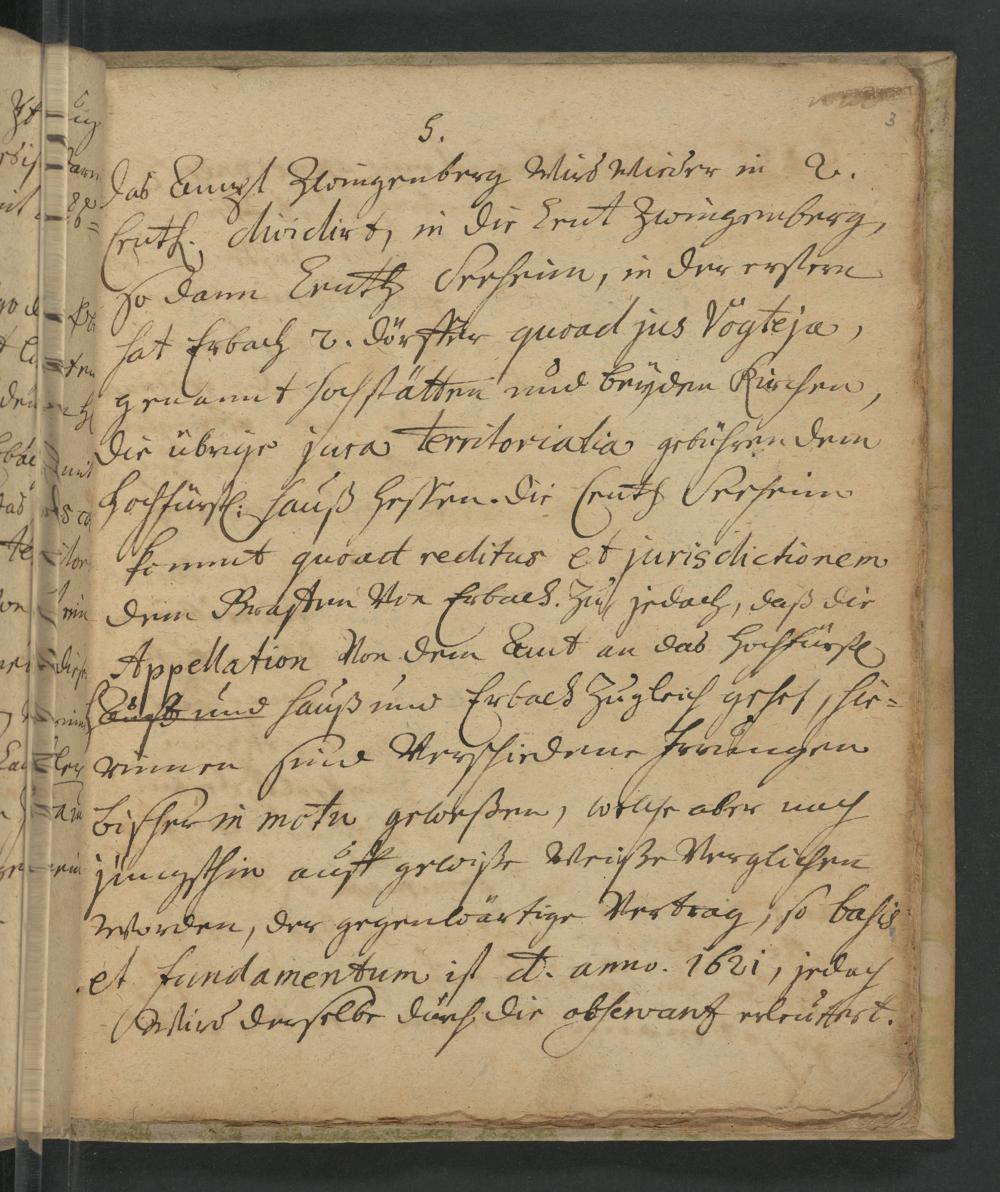 3
5.
das Ampt Zwingenberg wird wieder in 2.
Centh. dividirt, in die Cent Zwingenberg,
so dann Centh Seeheim, in der erstern
hat Erbach 2. dörffer quoad jus Vogtejæ,
genannt hochstätten und beÿden Kirchen,
die übrige jura territorialia gebühren dem
Hochfürstl: hauß Hessen. die Centh Seeheim
kommt quoad reditus et jurisdictionem
dem Graffen von Erbach zu, jedoch, daß die
Appellation von dem Amt an das Hochfürstl
und hauß und Erbach zugleich gehet, hie=
rinnen sind verschiedene Irrungen
bißher in motu geweßen, welche aber nach
jüngsthin auff gewiße weiße verglichen
worden, der gegenwärtige Vertrag, so basis
et fundamentum ist d. anno. 1621, jedoch
wird derselbe durch die observantz erleuttert.